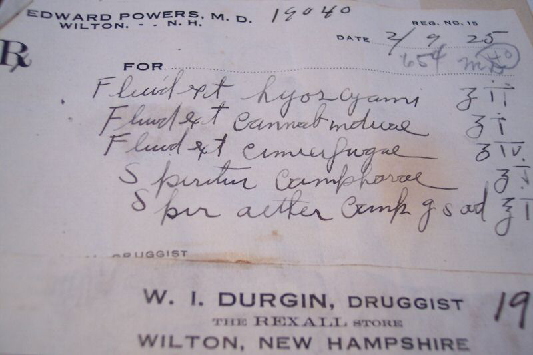 EDWARD POWERS, M. D. 19040
WILTON. - - N. H.
REG. NO. 15
DATE 2/9 25
654
℞
FOR
Fluid ext hyoscyami ʒ ii
Fluid ext cannab indicae ʒ i
Fluid ext cimicifugae ʒ iv
Spiritus camphorae ʒ i
Spir aether Comp q s ad ʒ i
DRUGGIST
W. I. DURGIN, DRUGGIST 19
THE REXALL STORE
WILTON, NEW HAMPSHIRE